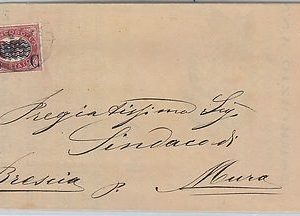 Pregiatissimo Sig
Sindaco di
Brescia p. Mura